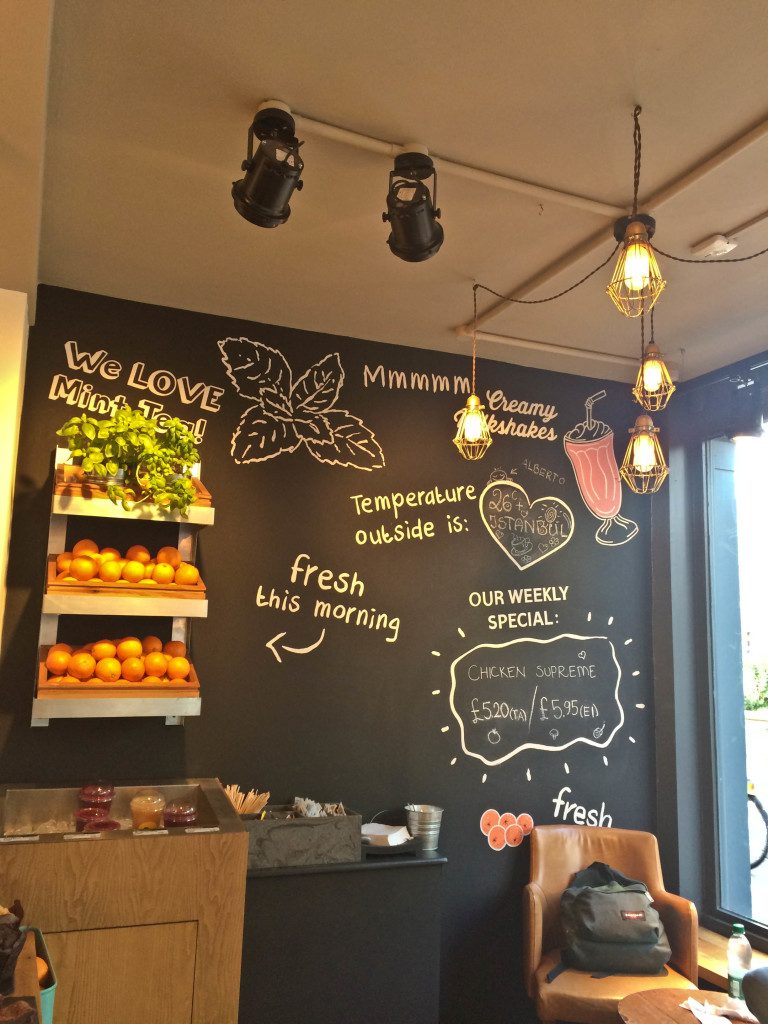 We LOVE
Mint Tea!
Mmmmm
Creamy
Milkshakes
ALBERTO
Temperature
outside is:
26°C
ISTANBUL
fresh
this morning
OUR WEEKLY
SPECIAL:
CHICKEN SUPREME
£5.20(TA) / £5.95(EI)
fresh